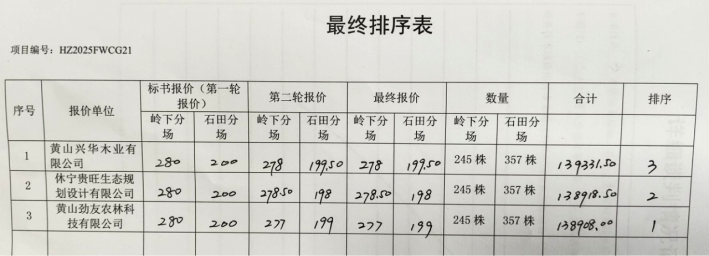 最终排序表
项目编号：HZ2025FWCG21
序号 报价单位 标书报价（第一轮报价） 第二轮报价 最终报价 数量 合计 排序
岭下分场 石田分场 岭下分场 石田分场 岭下分场 石田分场 岭下分场 石田分场
1 黄山兴华木业有限公司 280 200 278 199.50 278 199.50 245株 357株 139331.50 3
2 休宁贵旺生态规划设计有限公司 280 200 278.50 198 278.50 198 245株 357株 138918.50 2
3 黄山劲友农林科技有限公司 280 200 277 199 277 199 245株 357株 138908.00 1